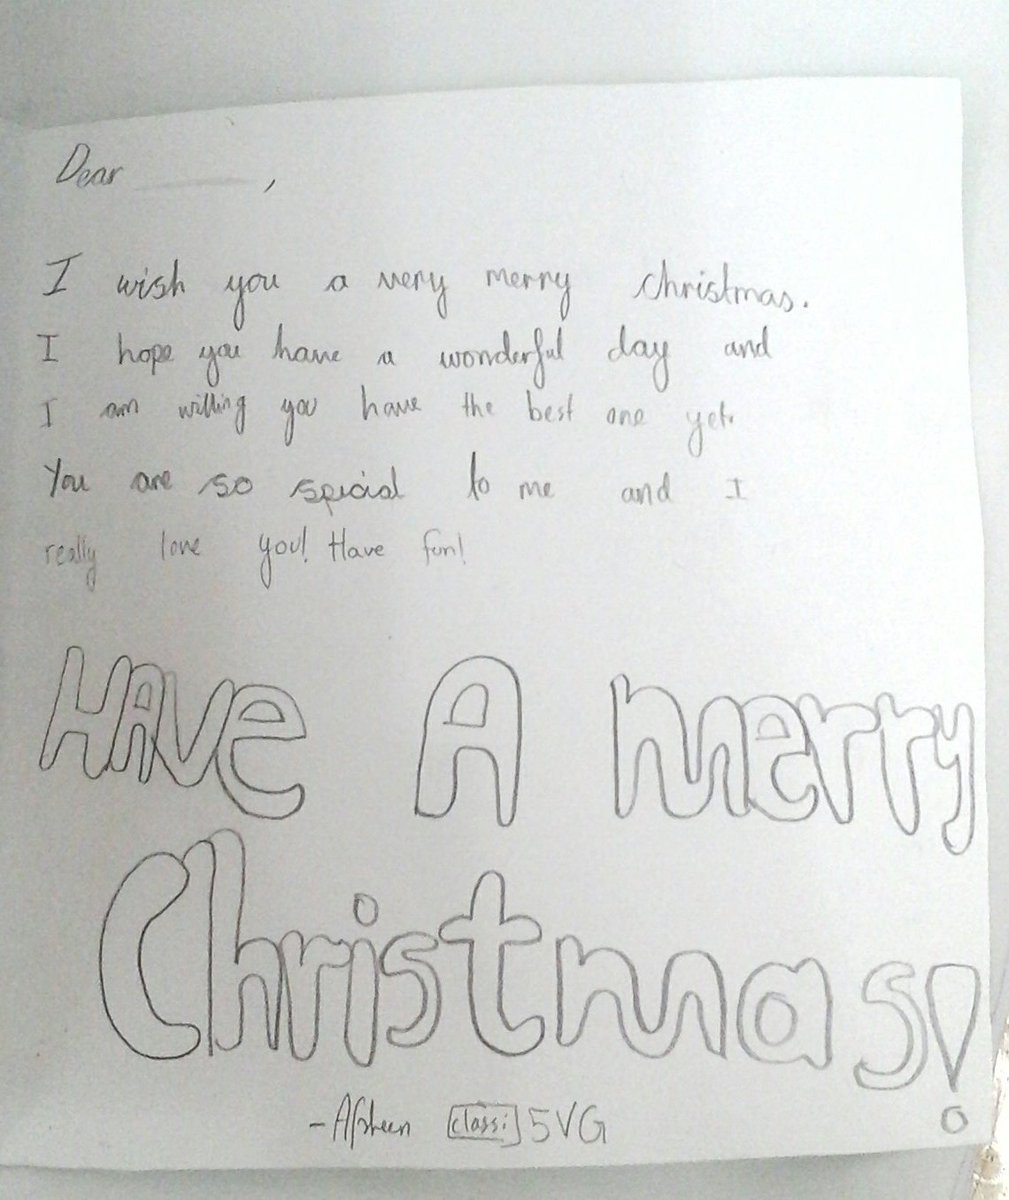 Dear ______,
I wish you a very merry christmas.
I hope you have a wonderful day and
I am willing you have the best one yet.
You are so spicial to me and I
really love you! Have fun!
HAVe A merry
Christmas!
-Afsheen class: 5VG